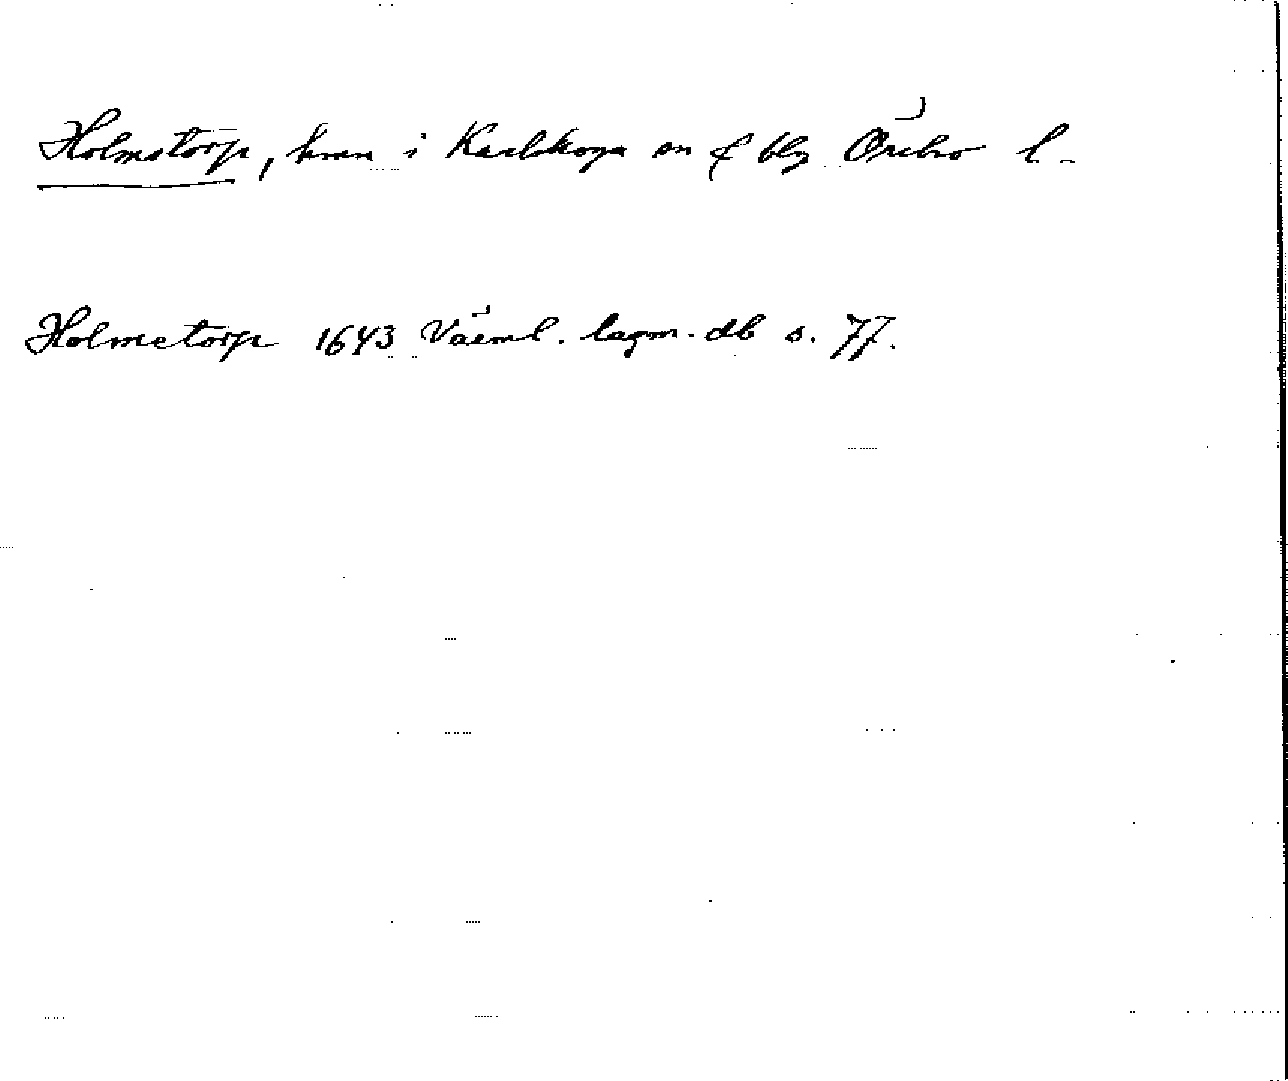 Holmstorp, hmn i Karlskoga sn & blg Örebro l.
Holmetorp 1643 Värml. lagm. db s. 77.